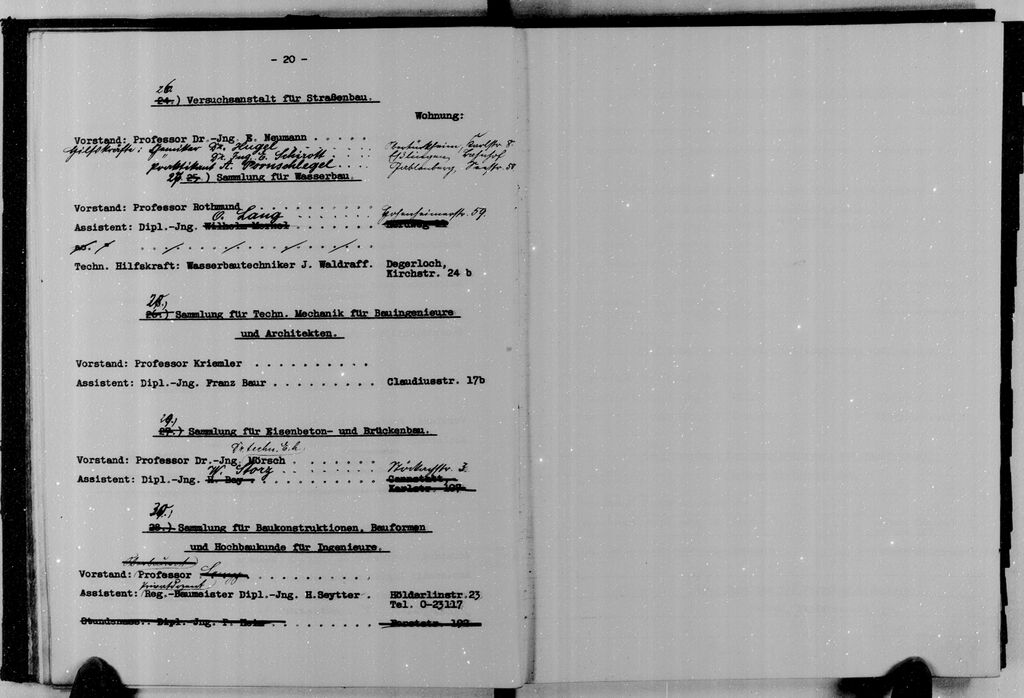 - 20 -
26.
24.) Versuchsanstalt für Straßenbau.
Wohnung:
Vorstand: Professor Dr.-Jng. E. Neumann . . . . .
Hilfskräfte: Chemiker Dr. Hugel . . . . Karlstr. 8
" Dr. Ing. E. Schirott . . . Esslingen, Bahnhof
Praktikant A. . . . Gablenberg, Seestr. 58
27. 25.) Sammlung für Wasserbau.
Vorstand: Professor Rothmund . . . . . . . . . .
O. Lang 59.
Assistent: Dipl.-Jng. Wilhelm . . . . . . . Nordweg
Techn. Hilfskraft: Wasserbautechniker J. Waldraff. Degerloch,
Kirchstr. 24 b
28.)
26.) Sammlung für Techn. Mechanik für Bauingenieure
und Architekten.
Vorstand: Professor Kriemler . . . . . . . . . .
Assistent: Dipl.-Jng. Franz Baur . . . . . . . . Claudiusstr. 17b
29.)
27.) Sammlung für Eisenbeton- und Brückenbau.
Dr. techn. E.h.
Vorstand: Professor Dr.-Jng. Mörsch . . . . . . .
W. Storz Stöckachstr. 3
Assistent: Dipl.-Jng. H. Bay . . . . . . . . Cannstatt,
Karlstr. 109
30.)
28.) Sammlung für Baukonstruktionen, Bauformen
und Hochbaukunde für Ingenieure.
Vorstand: Professor . . . . . . . . . .
Privatdozent
Assistent: Reg.-Baumeister Dipl.-Jng. H.Seytter . Hölderlinstr.23
Tel. 0-23117
Stundenass.: Dipl. Jng. P. Heim . . . . . . . . . 192